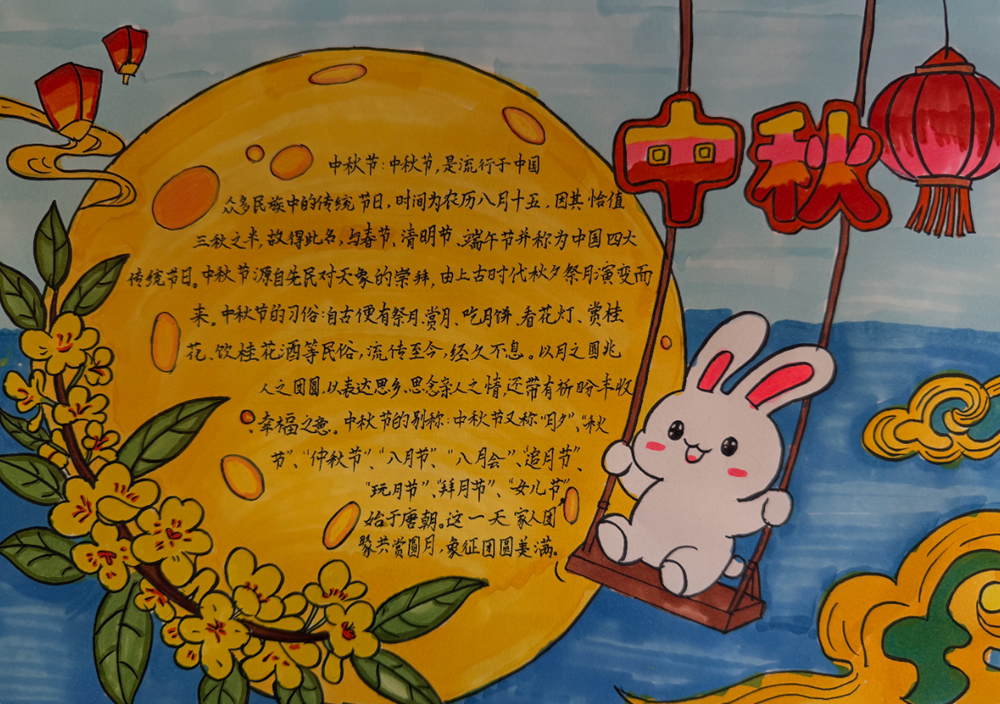 中秋
中秋节：中秋节，是流行于中国
众多民族中的传统节日，时间为农历八月十五，因其恰值
三秋之半，故得此名，与春节、清明节、端午节并称为中国四大
传统节日。中秋节源自先民对天象的崇拜，由上古时代秋夕祭月演变而
来。中秋节的习俗：自古便有祭月、赏月、吃月饼、看花灯、赏桂
花、饮桂花酒等民俗，流传至今，经久不息。以月之圆兆
人之团圆，以表达思乡、思念亲人之情，还带有祈盼丰收
幸福之意。中秋节的别称：中秋节又称“月夕”、“秋
节”、“仲秋节”、“八月节”、“八月会”、“追月节”、
“玩月节”、“拜月节”、“女儿节”
始于唐朝。这一天家人团
聚共赏圆月，象征团圆美满。